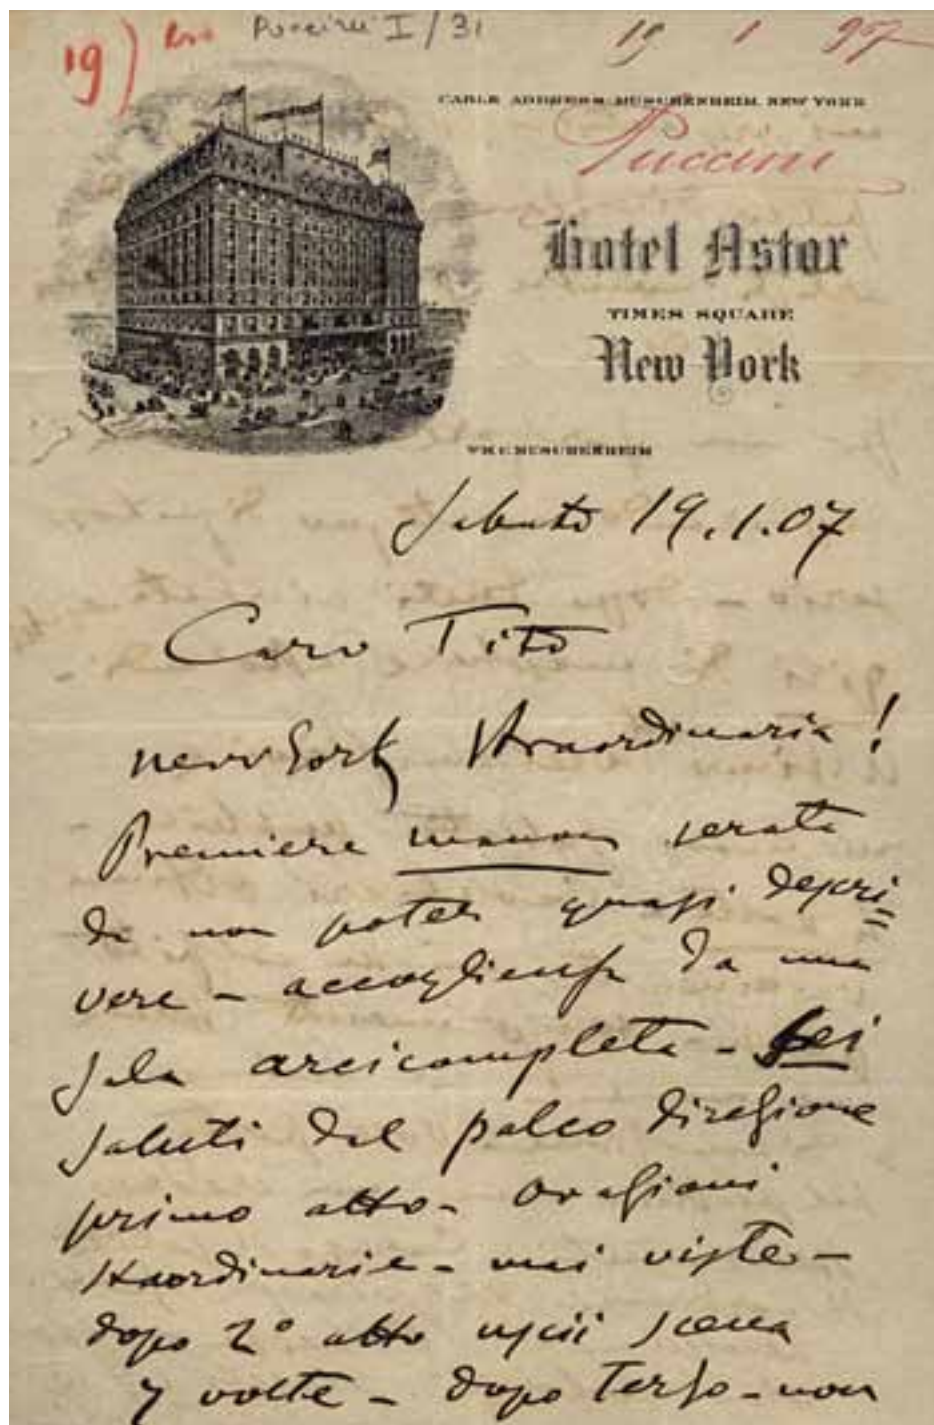 19)
Puccini I/31
19 1 907
CABLE ADDRESS MUSCHENHEIM, NEW YORK
Puccini
Hotel Astor
TIMES SQUARE
New York
WM C. MUSCHENHEIM
Sabato 19.1.07
Caro Tito
New York straordinaria!
Premiere Manon serata
da non poter quasi descri=
vere – accoglienza da una
sala arcicompleta – sei
saluti dal palco direzione
primo atto – ovazioni
straordinarie – mai viste –
dopo 2º atto uscii scena
7 volte – dopo terzo – non